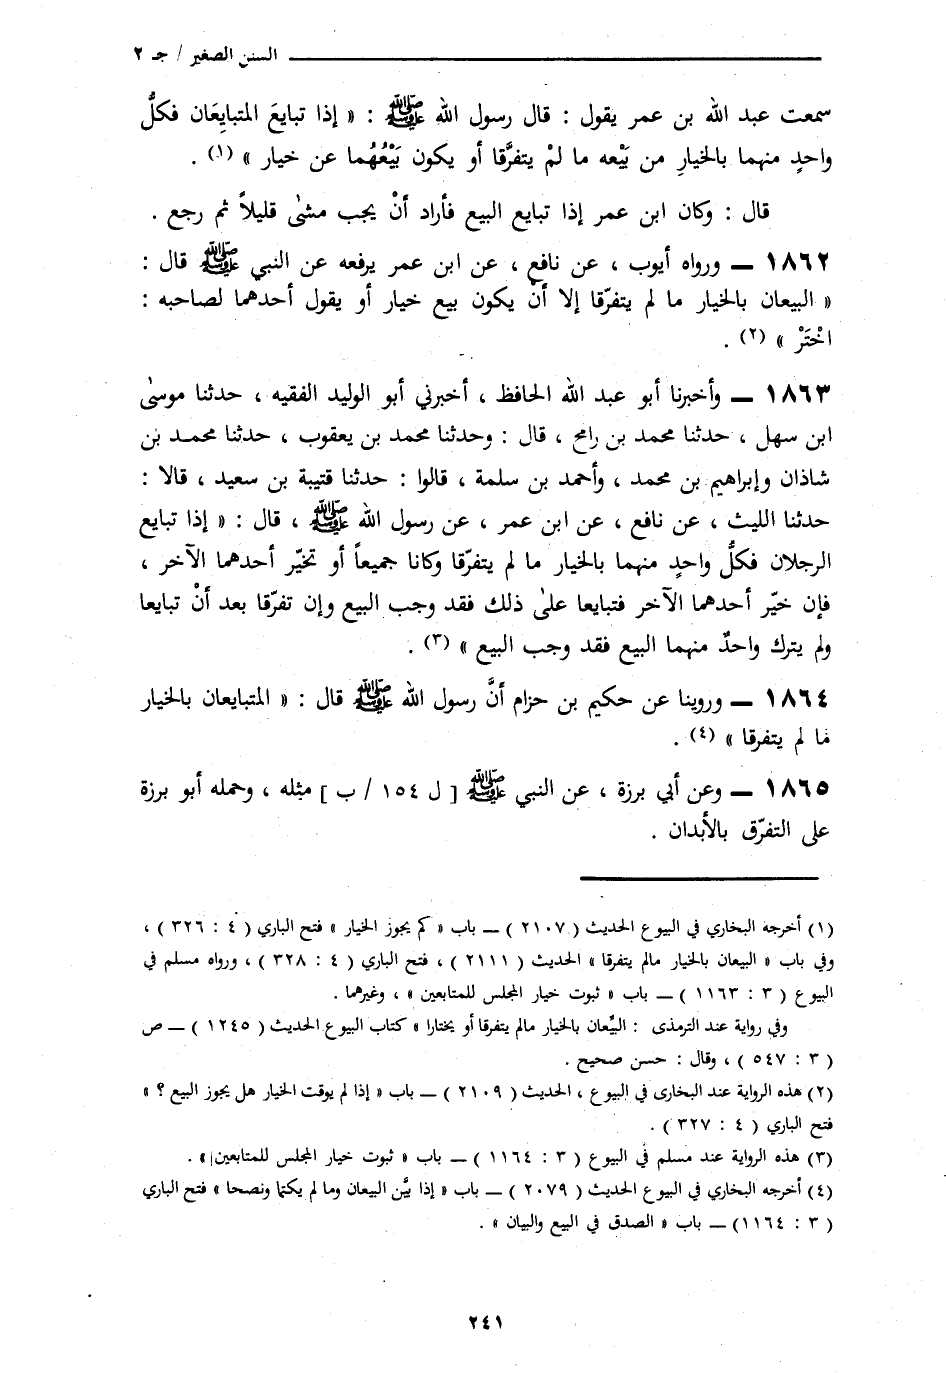 السنن الصغير / جـ ٢
سمعت عبد الله بن عمر يقول : قال رسول الله ﷺ : « إذا تبايعَ المتبايعَان فكلُّ
واحدٍ منهما بالخيارِ من بَيْعه ما لمْ يتفرَّقا أو يكون بَيْعُهُما عن خيار » (١) .
قال : وكان ابن عمر إذا تبايع البيع فأراد أنْ يجب مشىٰ قليلاً ثم رجع .
١٨٦٢ ــ ورواه أيوب ، عن نافع ، عن ابن عمر يرفعه عن النبي ﷺ قال :
« البيعان بالخيار ما لم يتفرّقا إلا أنْ يكون بيع خيار أو يقول أحدهما لصاحبه :
اخْتَرْ » (٢) .
١٨٦٣ ــ وأخبرنا أبو عبد الله الحافظ ، أخبرني أبو الوليد الفقيه ، حدثنا موسىٰ
ابن سهل ، حدثنا محمد بن رامح ، قال : وحدثنا محمد بن يعقوب ، حدثنا محمـد بن
شاذان وإبراهيم بن محمد ، وأحمد بن سلمة ، قالوا : حدثنا قتيبة بن سعيد ، قالا :
حدثنا الليث ، عن نافع ، عن ابن عمر ، عن رسول الله ﷺ ، قال : « إذا تبايع
الرجلان فكلُّ واحدٍ منهما بالخيار ما لم يتفرّقا وكانا جميعاً أو تخيّر أحدهما الآخر ،
فإن خيّر أحدهما الآخر فتبايعا علىٰ ذلك فقد وجب البيع وإن تفرّقا بعد أنْ تبايعا
ولم يترك واحدٌ منهما البيع فقد وجب البيع » (٣) .
١٨٦٤ ــ وروينا عن حكيم بن حزام أنَّ رسول الله ﷺ قال : « المتبايعان بالخيار
ما لم يتفرقا » (٤) .
١٨٦٥ ــ وعن أبي برزة ، عن النبي ﷺ [ ل ١٥٤ / ب ] مثله ، وحمله أبو برزة
على التفرّق بالأبدان .
(١) أخرجه البخاري في البيوع الحديث ( ٢١٠٧ ) ــ باب « كم يجوز الخيار » فتح الباري ( ٤ : ٣٢٦ ) ،
وفي باب « البيعان بالخيار مالم يتفرقا » الحديث ( ٢١١١ ) ، فتح الباري ( ٤ : ٣٢٨ ) ، ورواه مسلم في
البيوع ( ٣ : ١١٦٣ ) ــ باب « ثبوت خيار المجلس للمتابعين » ، وغيرهما .
وفي رواية عند الترمذى : البيِّعان بالخيار مالم يتفرقا أو يختارا » كتاب البيوع الحديث ( ١٢٤٥ ) ــ ص
( ٣ : ٥٤٧ ) ، وقال : حسن صحيح .
(٢) هذه الرواية عند البخارى في البيوع ، الحديث ( ٢١٠٩ ) ــ باب « إذا لم يوقت الخيار هل يجوز البيع ؟ »
فتح الباري ( ٤ : ٣٢٧ ) .
(٣) هذه الرواية عند مسلم في البيوع ( ٣ : ١١٦٤ ) ــ باب « ثبوت خيار المجلس للمتابعين» .
(٤) أخرجه البخاري في البيوع الحديث ( ٢٠٧٩ ) ــ باب « إذا بيَّن البيعان وما لم يكتما ونصحا » فتح الباري
( ٣ : ١١٦٤) ــ باب « الصدق في البيع والبيان » .
٢٤١